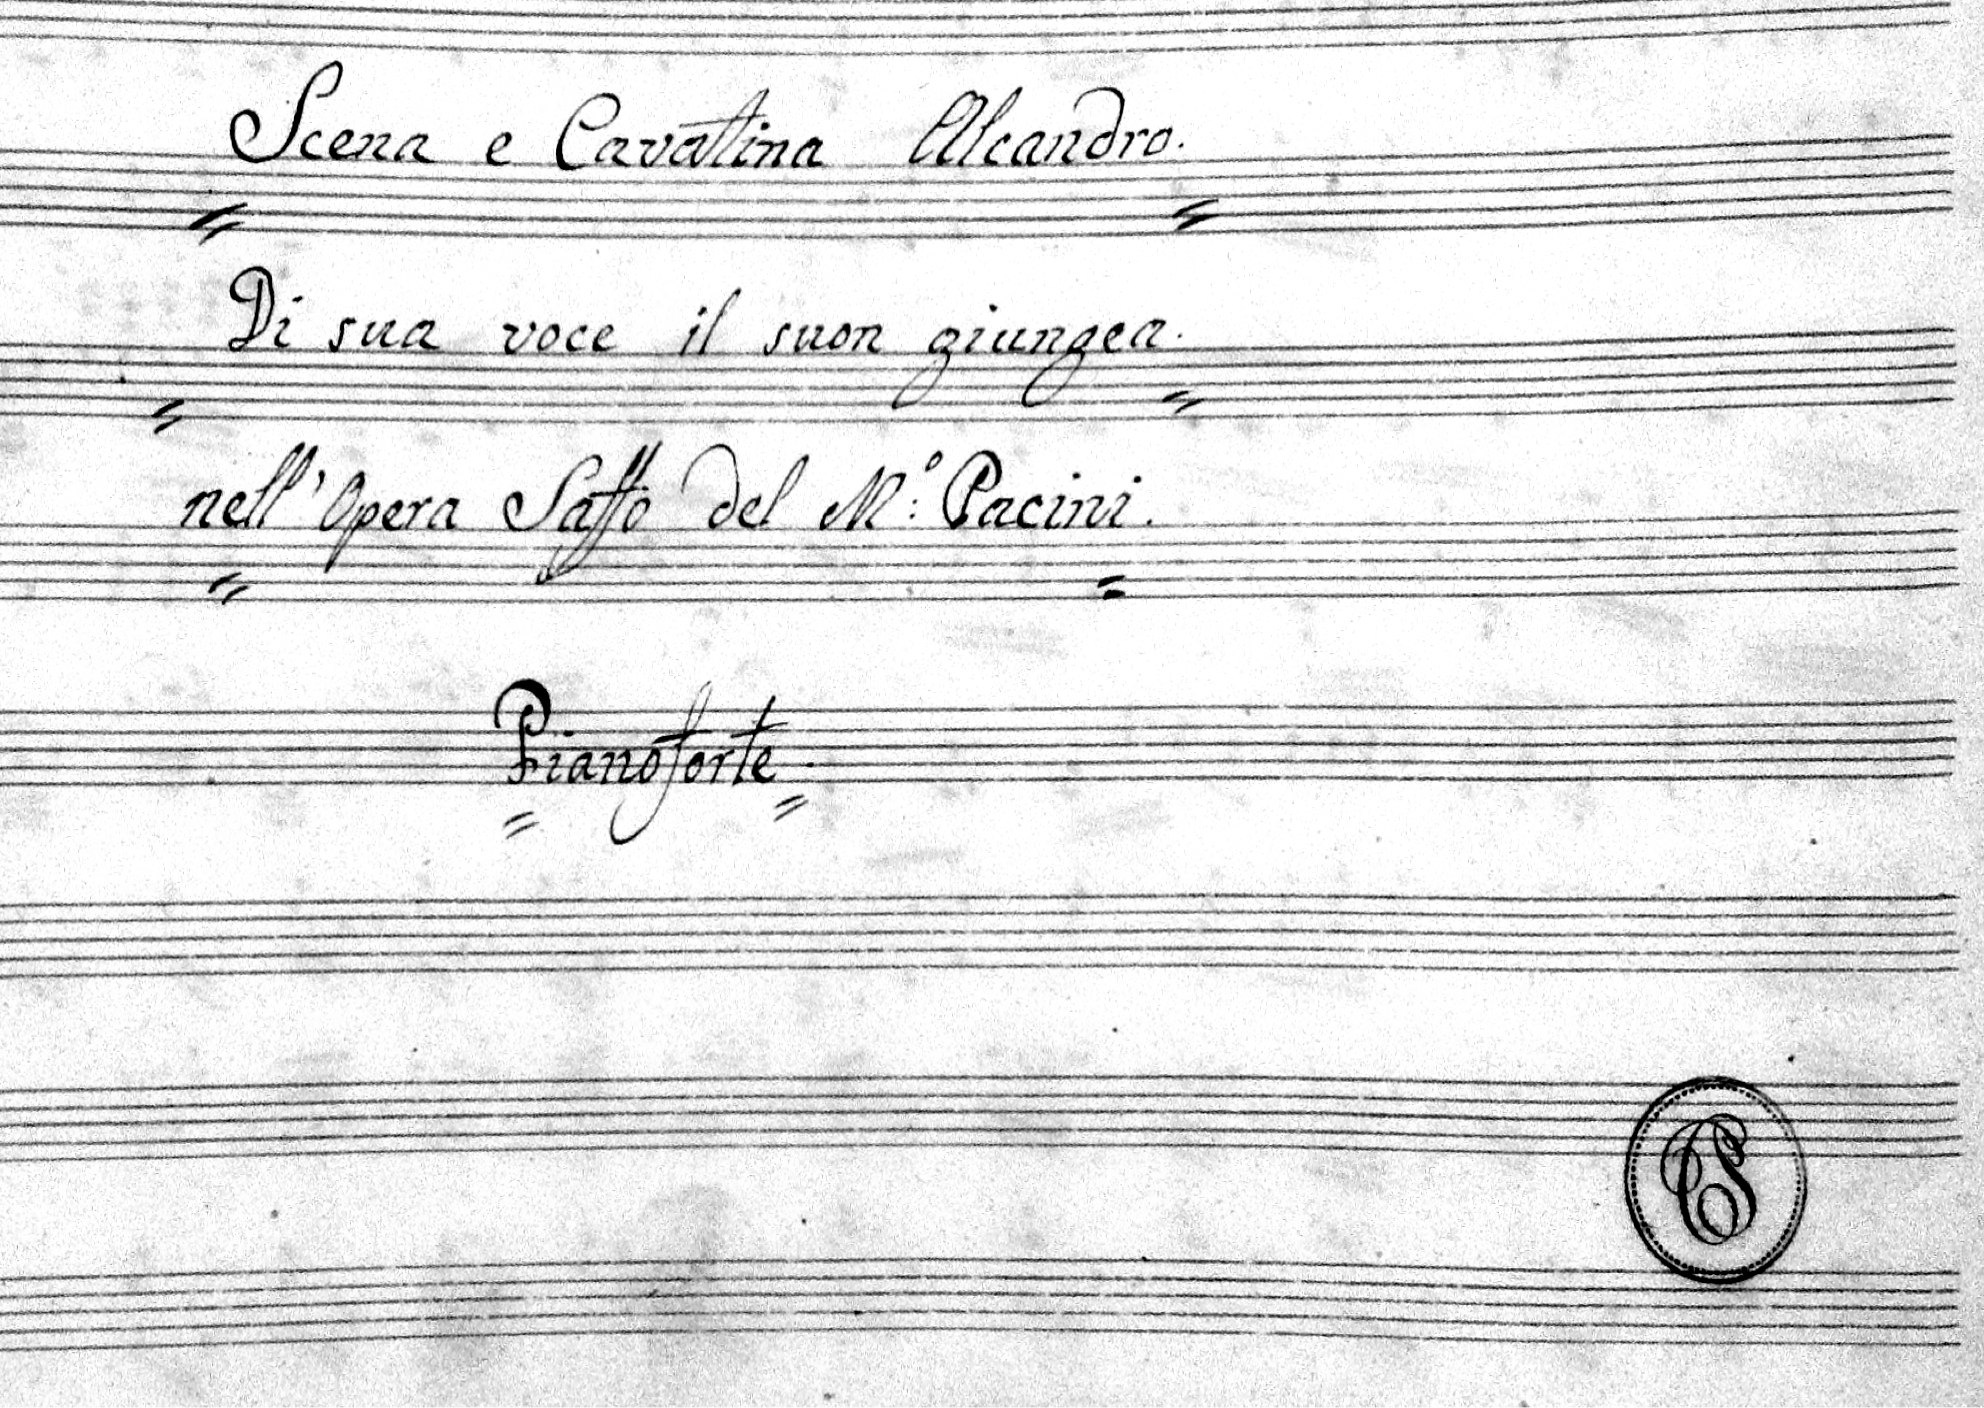 Scena e Cavatina Alcandro.
Di sua voce il suon giungea.
nell'Opera Saffo del M.º Pacini.
Pianoforte.
CS